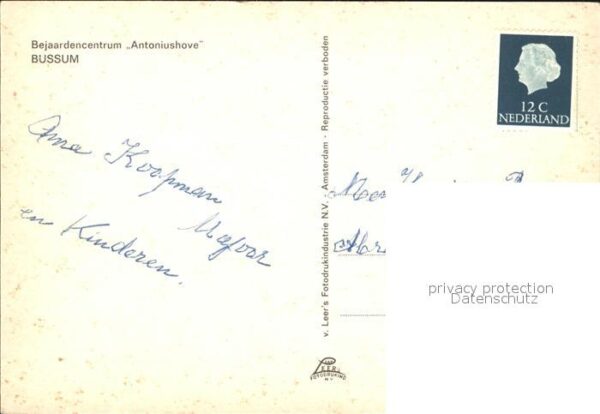 Bejaardencentrum „Antoniushove"
BUSSUM
12 C
NEDERLAND
Koopman
en Kinderen.
v. Leer's Fotodrukindustrie N.V. - Amsterdam - Reproductie verboden
LEER'S
FOTODRUKIND
N.V.
privacy protection
Datenschutz